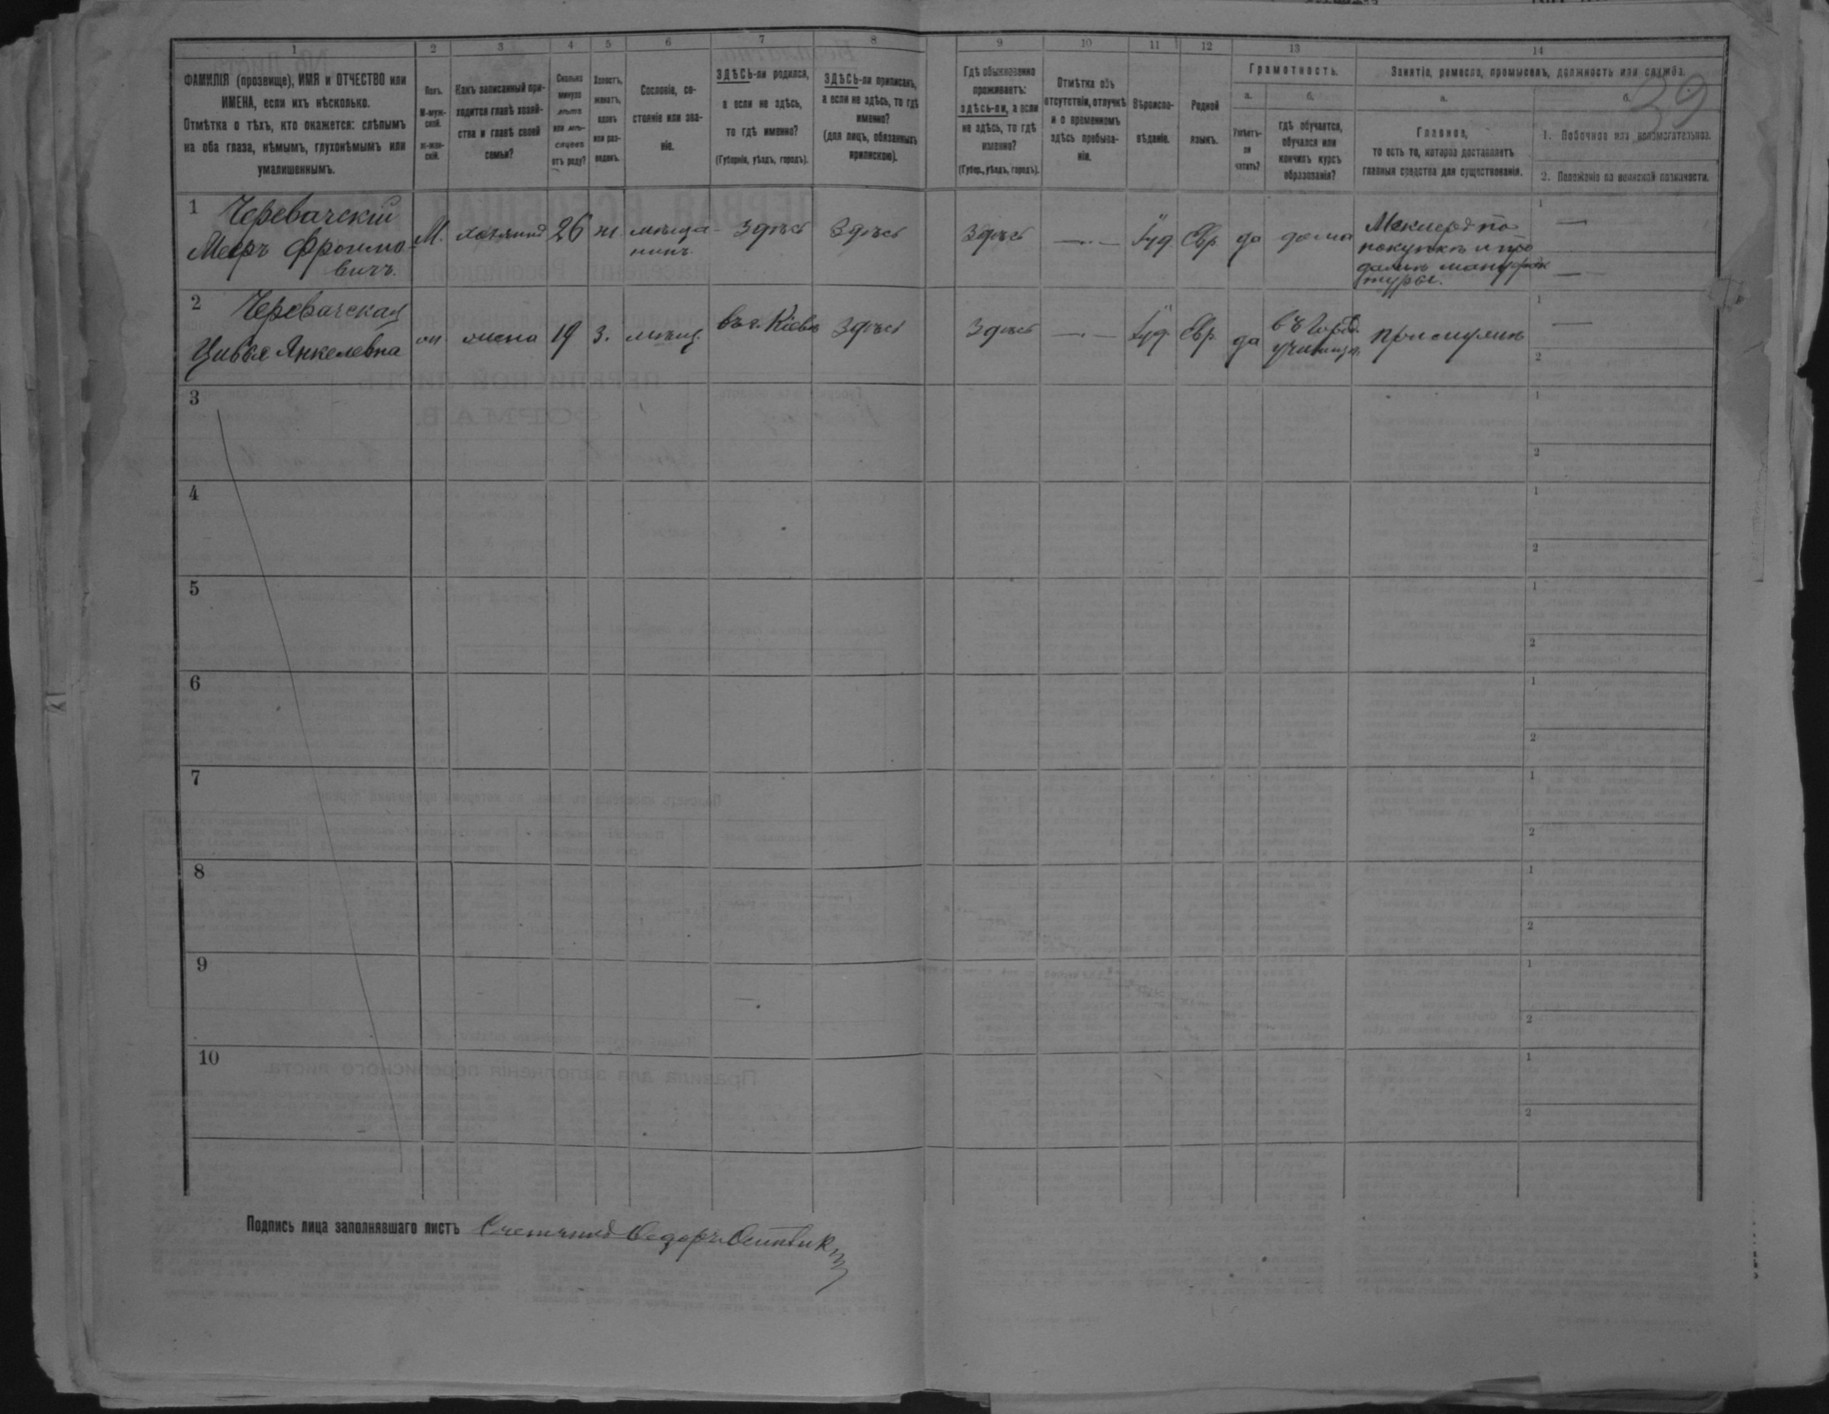 39
1 2 3 4 5 6 7 8 9 10 11 12 13 14
ФАМИЛІЯ (прозвище), ИМЯ и ОТЧЕСТВО или
ИМЕНА, если ихъ нѣсколько.
Отмѣтка о тѣхъ, кто окажется: слѣпымъ
на оба глаза, нѣмымъ, глухонѣмымъ или
умалишеннымъ.
Полъ.
М-муж-
ской.
Ж-жен-
скій.
Какъ записанный при-
ходится главѣ хозяй-
ства и главѣ своей
семьи?
Сколько
минуло
лѣтъ
или мѣ-
сяцевъ
отъ роду?
Холостъ,
женатъ,
вдовъ
или раз-
веденъ.
Сословіе, со-
стояніе или зва-
ніе.
ЗДѢСЬ-ли родился,
а если не здѣсь,
то гдѣ именно?
(Губернія, уѣздъ, городъ).
ЗДѢСЬ-ли приписанъ,
а если не здѣсь, то гдѣ
именно?
(для лицъ, обязанныхъ
припискою).
Гдѣ обыкновенно
проживаетъ:
здѣсь-ли, а если
не здѣсь, то гдѣ
именно?
(Губер., уѣздъ, городъ).
Отмѣтка объ
отсутствіи, отлучкѣ
и о временномъ
здѣсь пребыва-
ніи.
Вѣроиспо-
вѣданіе.
Родной
языкъ.
Грамотность.
а.
Умѣетъ-
ли
читать?
б.
гдѣ обучается,
обучался или
кончилъ курсъ
образованія?
Занятіе, ремесло, промыселъ, должность или служба.
а.
Главное,
то есть то, которое доставляетъ
главныя средства для существованія.
б.
1. Побочное или вспомогательное.
2. Положеніе по воинской повинности.
1 Черевачскій
Мееръ Фроимо-
вичъ.
М. хозяинъ 26 ж. мѣща-
нинъ.
Здѣсь Здѣсь Здѣсь — Іуд. Евр. да дома
Маклеръ по
покупкѣ и про
дажѣ мануфак
туры.
1 —
2 —
2 Черевачская
Цивья Янкелевна
ж жена 19 З. мѣщ. въ г. Кіевѣ Здѣсь Здѣсь — Іуд. Евр. да
въ Город.
училищѣ.
при мужѣ
1 —
2
3 1
2
4 1
2
5 1
2
6 1
2
7 1
2
8 1
2
9 1
2
10 1
2
Подпись лица заполнявшаго листъ Счетчикъ Федоръ